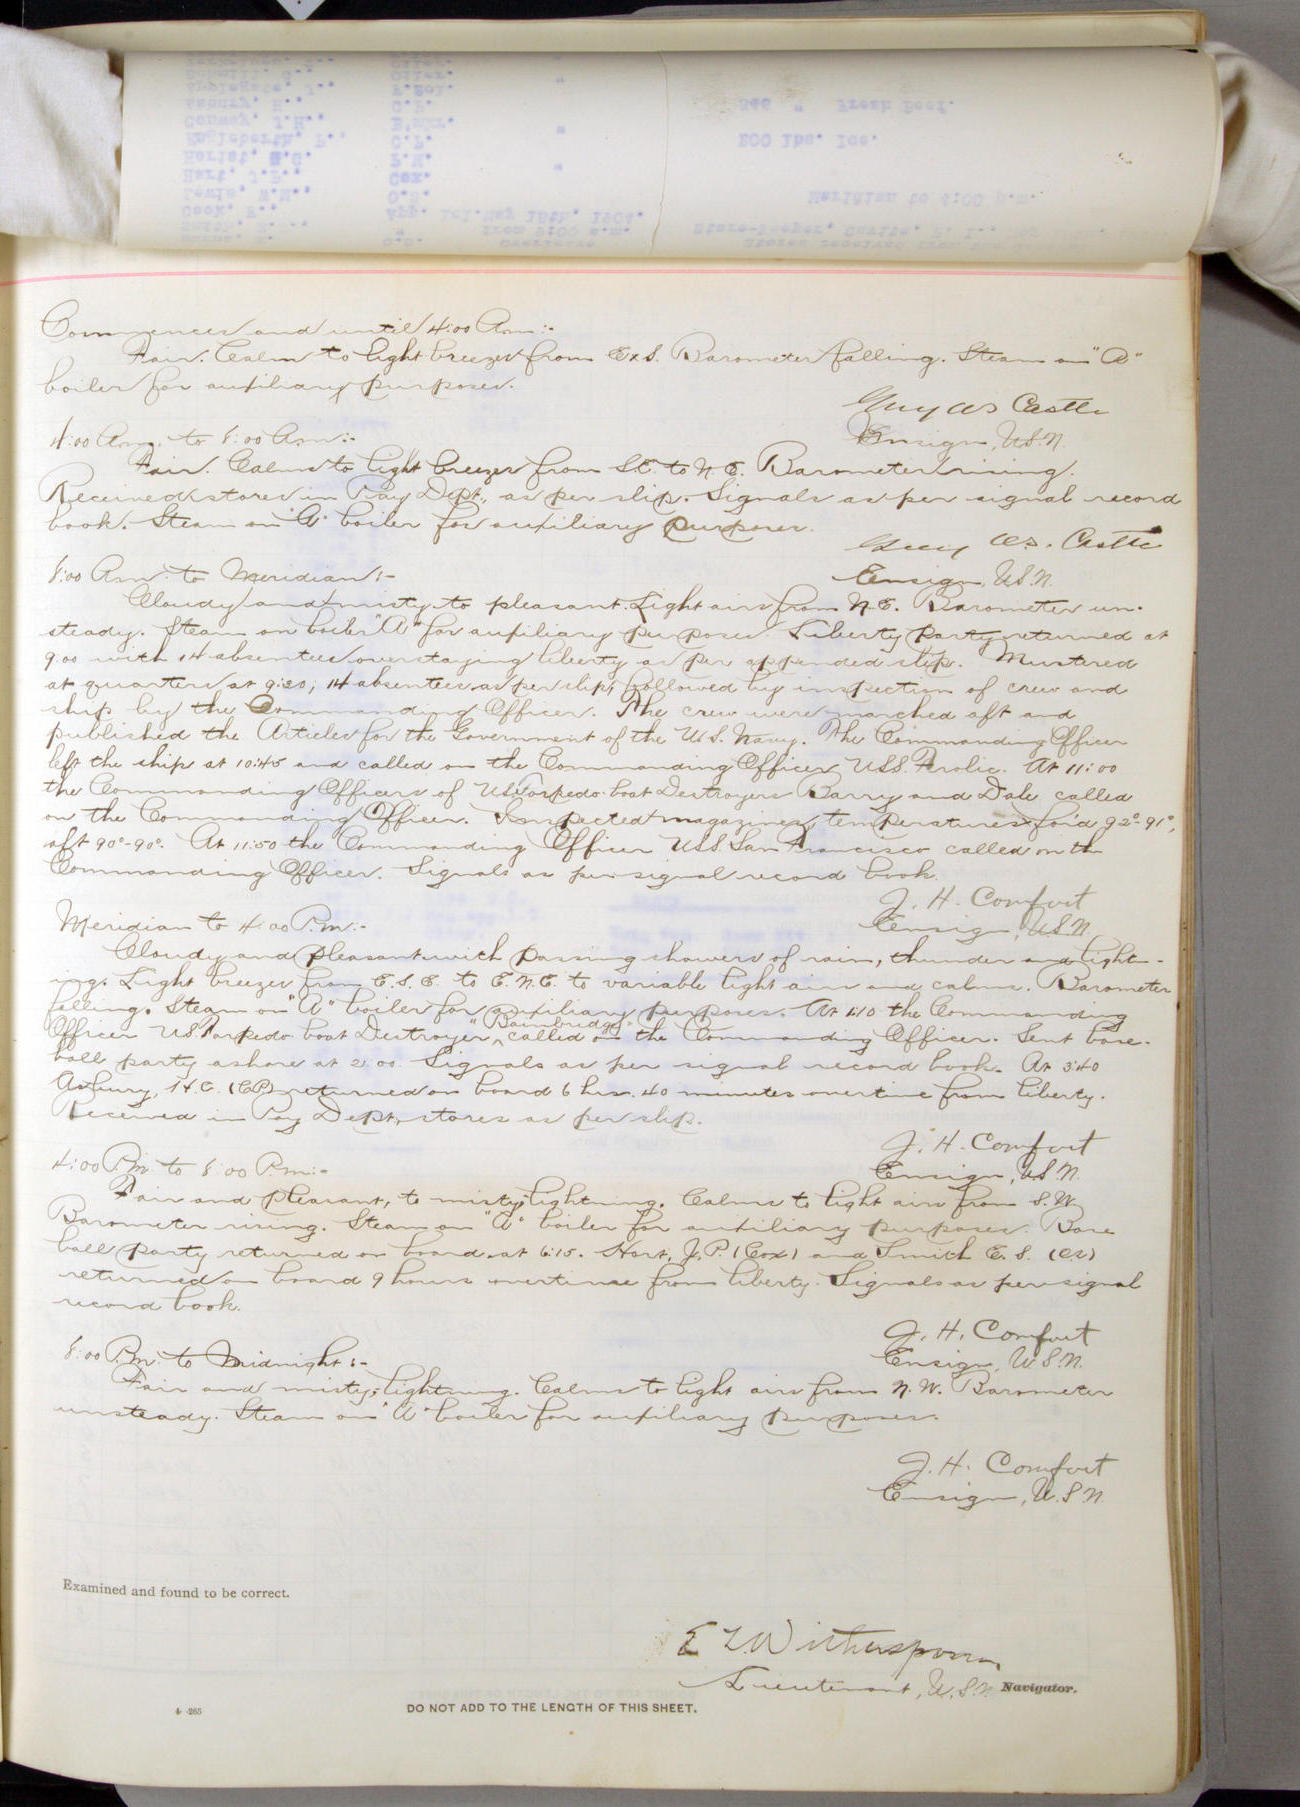 Commences and until 4:00 Am:-
Fair. Calm to light breezes from E x S. Barometer falling. Steam on "A"
boiler for auxiliary purposes.
Guy W S Castle
Ensign, U.S.N.
4:00 Am. to 8:00 Am:-
Fair. Calms to light breezes from SE. to N E. Barometer rising.
Received stores in Pay Dept., as per slip. Signals as per signal record
book. Steam on "A" boiler for auxiliary purposes.
Guy W.S. Castle
Ensign, U.S.N.
8:00 Am. to Meridian:-
Cloudy and misty to pleasant. Light airs from N.E. Barometer un-
steady. Steam on boiler "A" for auxiliary purposes. Liberty party returned at
9:00 with 14 absentees overstaying liberty as per appended slip. Mustered
at quarters at 9:30, 14 absentees as per slip, followed by inspection of crew and
ship by the Commanding Officer. The crew were marched aft and
published the Articles for the Government of the U.S. Navy. The Commanding Officer
left the ship at 10:45 and called on the Commanding Officer U.S.S. Frolic. At 11:00
the Commanding Officers of U.S. Torpedo-boat Destroyers Barry and Dale called
on the Commanding Officer. Inspected magazines, temperatures for'd 92°-91°,
aft 90°-90°. At 11:50 the Commanding Officer U.S.S. San Francisco called on the
Commanding Officer. Signals as per signal record book.
J. H. Comfort
Ensign, U.S.N.
Meridian to 4:00 P.m.:-
Cloudy and pleasant with passing showers of rain, thunder and light-
ing. Light breezes from E.S.E. to E.N.E. to variable light airs and calms. Barometer
falling. Steam on "A" boiler for auxiliary purposes. At 1:10 the Commanding
Officer U.S. Torpedo-boat Destroyer "Bainbridge" called on the Commanding Officer. Sent base-
ball party ashore at 2:00. Signals as per signal record book. At 3:40
Asbury, H.C. (CP) returned on board 6 hrs. 40 minutes overtime from liberty.
Received in Pay Dept., stores as per slip.
J. H. Comfort
Ensign, U.S.N.
4:00 P.m. to 8:00 P.m:-
Fair and pleasant, to misty; lightning. Calms to light airs from S.W.
Barometer rising. Steam on "A" boiler for auxiliary purposes. Base
ball party returned on board at 6:15. Hart, J.P. (Cox) and Smith E. S. (O.S)
returned on board 9 hours overtime from liberty. Signals as per signal
record book.
J. H. Comfort
Ensign, U.S.N.
8:00 P.m. to Midnight:-
Fair and misty; lightning. Calms to light airs from N.W. Barometer
unsteady. Steam on "A" boiler for auxiliary purposes.
J. H. Comfort
Ensign, U.S.N.
Examined and found to be correct.
E L.W itherspoon
Lieutenant, U.S.N. Navigator.
4-265
DO NOT ADD TO THE LENGTH OF THIS SHEET.